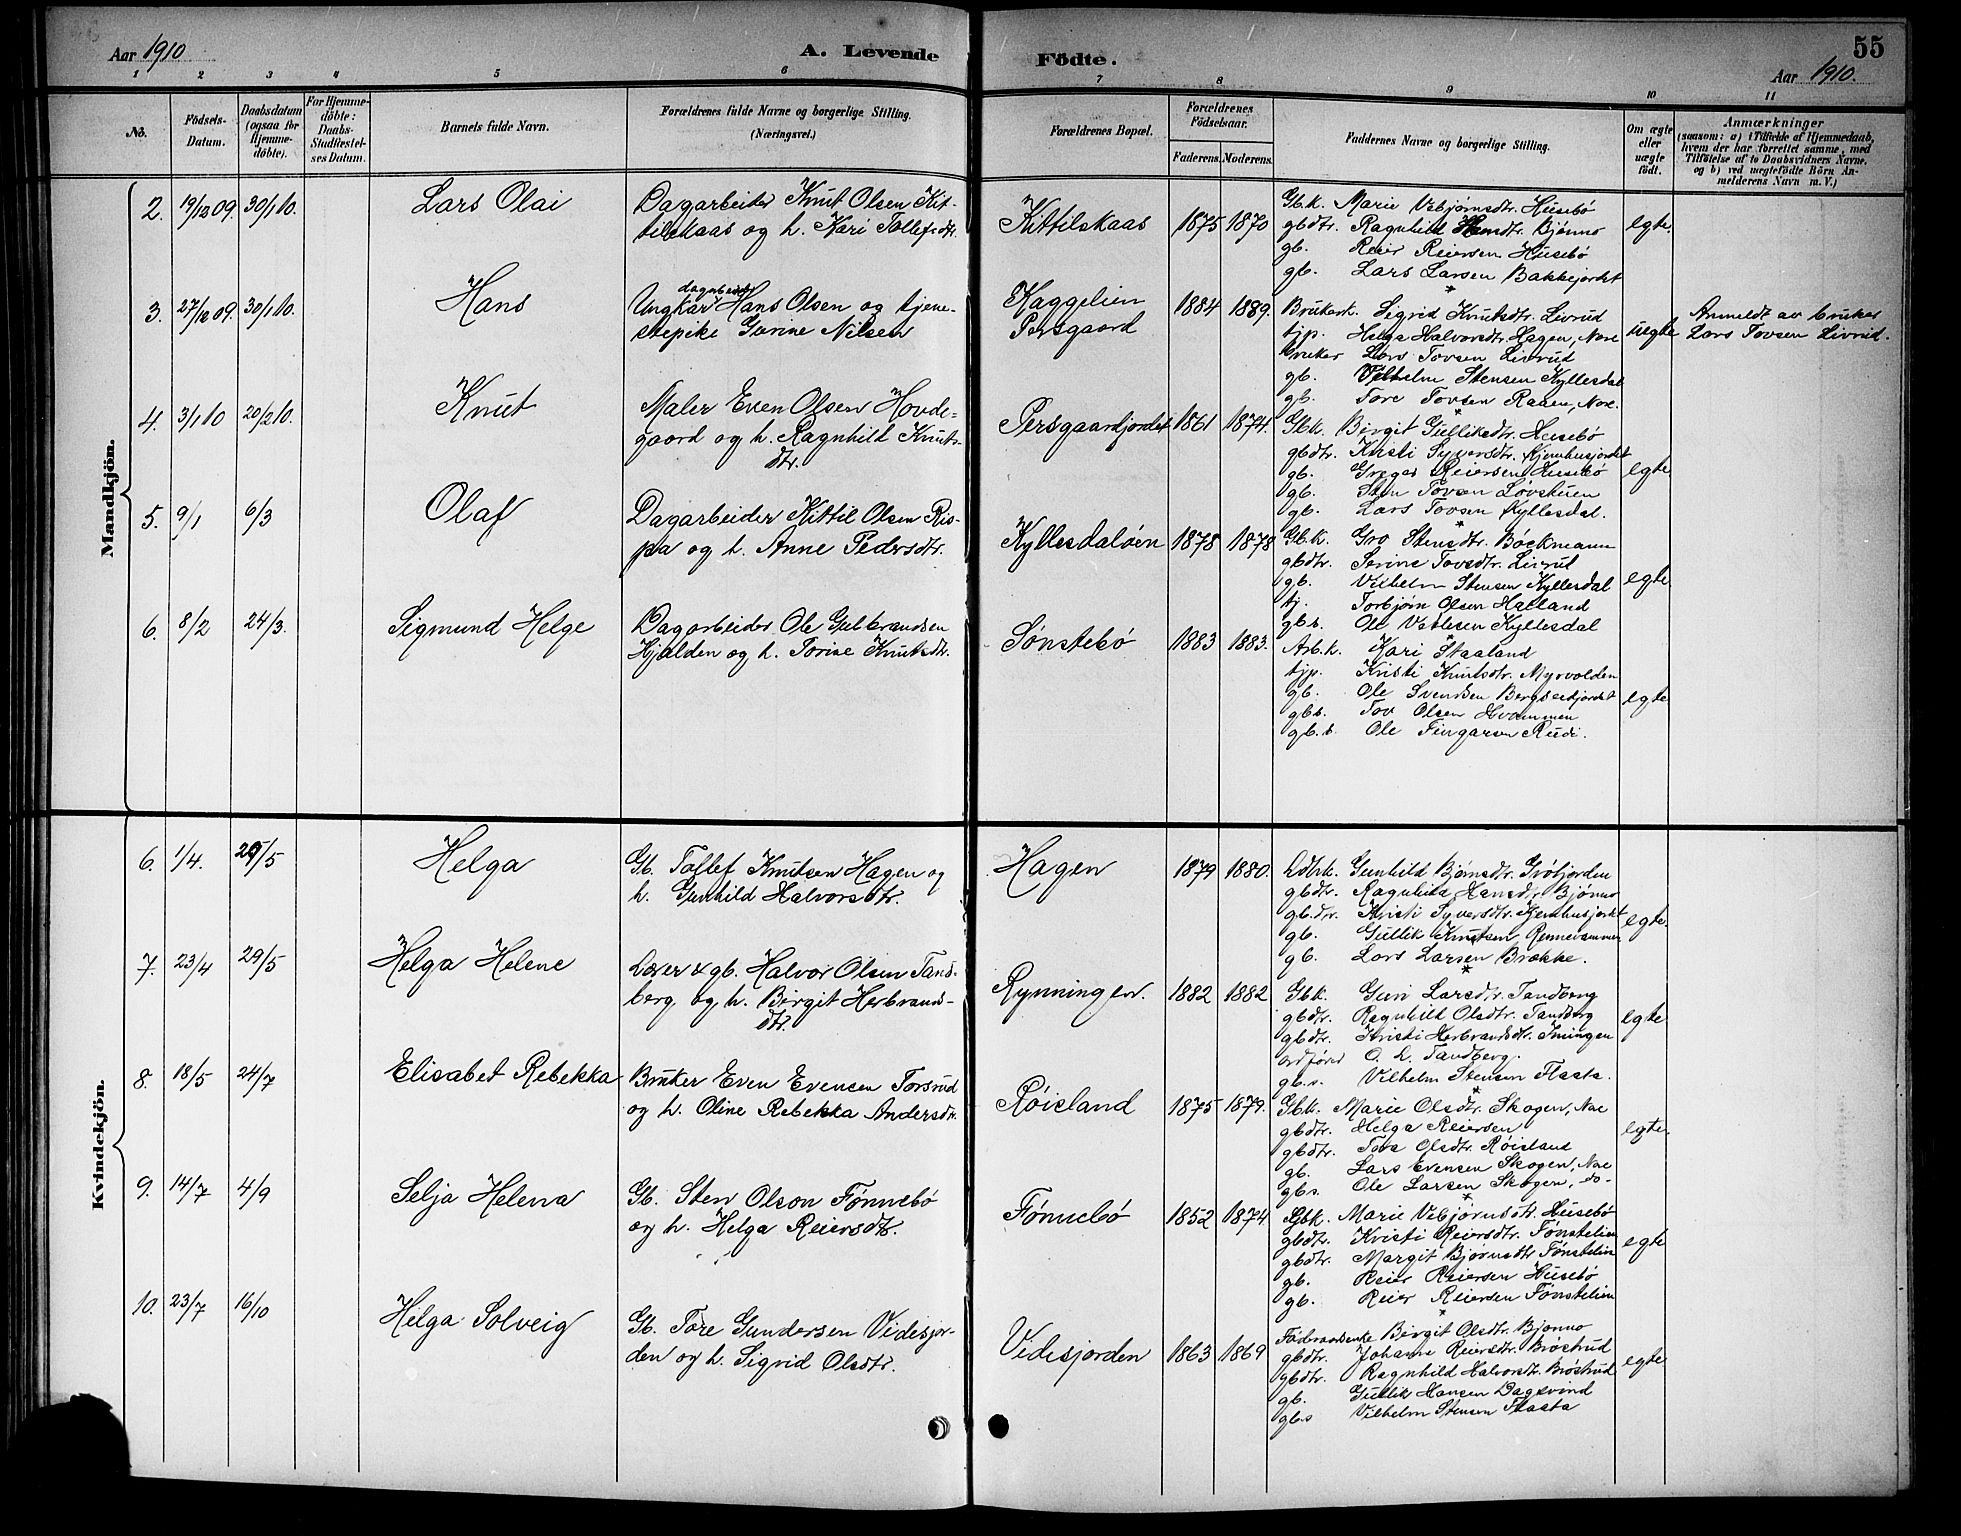 Aar 1910 A. Levende Födte. 55
Aar 1910.
1 2 3 4 5 6 7 8 9 10 11
No.
Födsels-Datum.
Daabsdatum (ogsaa for Hjemmedöbte).
For Hjemmedöbte: Daabs-Stadfæstelses Datum.
Barnets fulde Navn.
Forældrenes fulde Navne og borgerlige Stilling.
(Næringsvei.)
Forældrenes Bopæl.
Forældrenes Födselsaar.
Faderens. Moderens.
Faddernes Navne og borgerlige Stilling.
Om ægte eller uægte födt.
Anmærkninger
(saasom: a) i Tilfælde af Hjemmedaab,
hvem der har forrettet samme, med
Tilföielse af to Daabsvidners Navne,
og b) ved uægtefödte Börn An-
melderens Navn m. V.)
Mandkjön.
2. 19/12 09. 30/1 10. Lars Olai
Dagarbeider Knut Olsen Kit-
tilskaas og h. Kari Tollefsdtr.
Kittilskaas 1875 1870
Gbk. Marie Vebjørnsdtr. Husebø
gbdtr. Ragnhild Hansdtr. Bjønno
gb. Reier Reiersen Husebø
gb. Lars Larsen Bakkejordet
egte.
3. 27/12 09. 30/1 10. Hans
dagarbeider
Ungkar Hans Olsen og tjene-
stepike Gurine Nilsen
Kaggelien
Persgaard 1884 1889.
Brukerk. Sigrid Knutsdtr. Livrud
tjp. Helga Halvorsdtr. Hagen, Nore
bruker Lars Tovsen Livrud
gb. Vilhelm Stensen Kyllesdal
gb. Tore Tovsen Raaen, Nore.
uegte
Anmeldt av bruker
Lars Tovsen Livrud.
4. 3/1 10 20/2 10. Knut
Maler Even Olsen Hovde-
gaard og h. Ragnhild Knuts-
dtr.
Persgaardjordet 1861 1874.
Gbk. Birgit Gulliksdtr. Husebø
gbdtr. Kristi Syversdtr. Kjemhusjordet
gb. Greger Reiersen Husebø
gb. Sten Tovsen Løvstuen
gb. Lars Tovsen Kyllesdal.
egte
5. 9/1 6/3 Olaf
Dagarbeider Kittil Olsen Ris-
pa og h. Anne Pedersdtr.
Kyllesdaløen 1878 1878
Gb.k. Gro Stensdtr. Bøckmann
gbdtr. Torine Tovsdtr. Livrud
gb. Vilhelm Stensen Kyllesdal
tj. Torbjørn Olsen Halland
gbs. Ole Vetlesen Kyllesdal
egte
6. 8/2 24/3. Sigmund Helge
Dagarbeider Ole Gulbrandsen
Hjalden og h. Torine Knutsdtr.
Sønstebø 1883 1883.
Arb.k. Kari Staaland
tjp. Kristi Knutsdtr. Myrvolden
gb. Ole Svendsen Bergseidjordet
gbs. Tov Olsen Hvammen
gb.s. Ole Fingarsen Rudi.
egte
Kvindekjön.
6. 1/4. 29/5 Helga
Gb. Tollef Knutsen Hagen og
h. Gunhild Halvorsdtr.
Hagen 1879 1880.
Gunhild Bjørnsdtr. Grøtjorden
gbdtr. Ragnhild Hansdtr. Bjønno
gb.dtr. Kristi Syversdtr. Kjemhusjordet
gb. Gullik Knutsen Rennevammen
gb. Lars Larsen Brække.
egte.
7. 23/4 29/5 Helga Helene
Lærer & gb. Halvor Olsen Tand-
berg og h. Birgit Herbrands-
dtr.
Rynningen. 1882 1882
Gb.k. Guri Larsdtr. Tandberg
gbdtr. Ragnhild Olsdtr. Tandberg
gbdtr. Kristi Herbrandsdtr. Imingen
ordfører O. L. Tandberg.
gb.s. Vilhelm Stensen Flaata.
egte
8. 18/5 24/7 Elisabet Rebekka
Bruker Even Evensen Torsrud
og h. Oline Rebekka Andersdtr.
Røisland 1875 1879.
Gbk. Marie Olsdtr. Skogen, Nore
gbdtr. Helga Reiersen
gbdtr. Tora Olsdtr. Røisland
gb. Lars Evensen Skogen, Nore
gbs. Ole Larsen Skogen, -do-
egte.
9. 14/7 4/9 Selja Helena
Gb. Sten Olson Fønnebø
og h. Helga Reiersdtr.
Fønnebø 1852 1874
Gbk. Marie Vebjørnsdtr. Husebø
gbdtr. Kristi Reiersdtr. Fønstelien
gbdtr. Margit Bjørnsdtr. Fønstelien
gb. Reier Reiersen Husebø
gb. Reier Reiersen Fønstelien
egte
10. 23/7 16/10 Helga Solveig
Gb. Tore Gundersen Videsjor-
den og h. Sigrid Olsdtr.
Videsjorden 1863 1869
Føderaadsenke Birgit Olsdtr. Bjønno
gbdtr. Johanne Reiersdtr. Brøstrud
gbdtr. Ragnhild Halvorsdtr. Brøstrud
gb. Gullik Hansen Dagsvind
gbs Vilhelm Stensen Flaata
egte